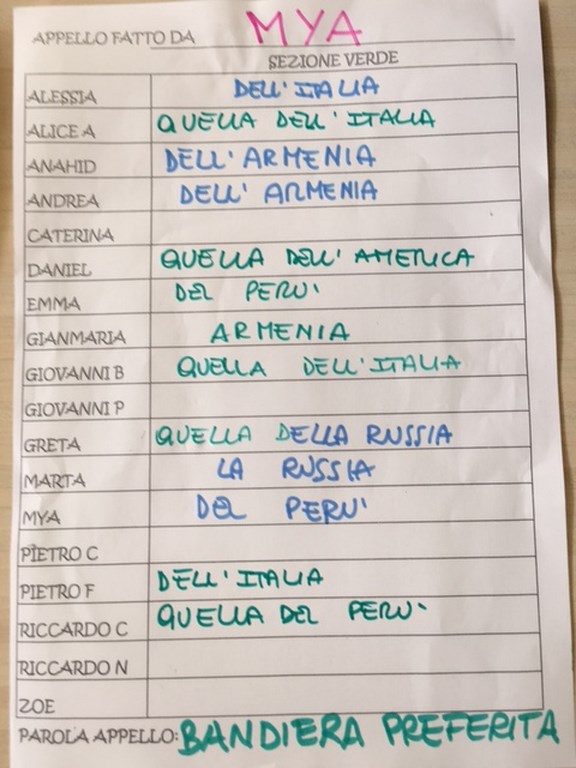 APPELLO FATTO DA MYA
SEZIONE VERDE
ALESSIA DELL'ITALIA
ALICE A QUELLA DELL'ITALIA
ANAHID DELL'ARMENIA
ANDREA DELL'ARMENIA
CATERINA
DANIEL QUELLA DELL'AMERICA
EMMA DEL PERU'
GIANMARIA ARMENIA
GIOVANNI B QUELLA DELL'ITALIA
GIOVANNI P
GRETA QUELLA DELLA RUSSIA
MARTA LA RUSSIA
MYA DEL PERU'
PIETRO C
PIETRO F DELL'ITALIA
RICCARDO C QUELLA DEL PERU'
RICCARDO N
ZOE
PAROLA APPELLO: BANDIERA PREFERITA